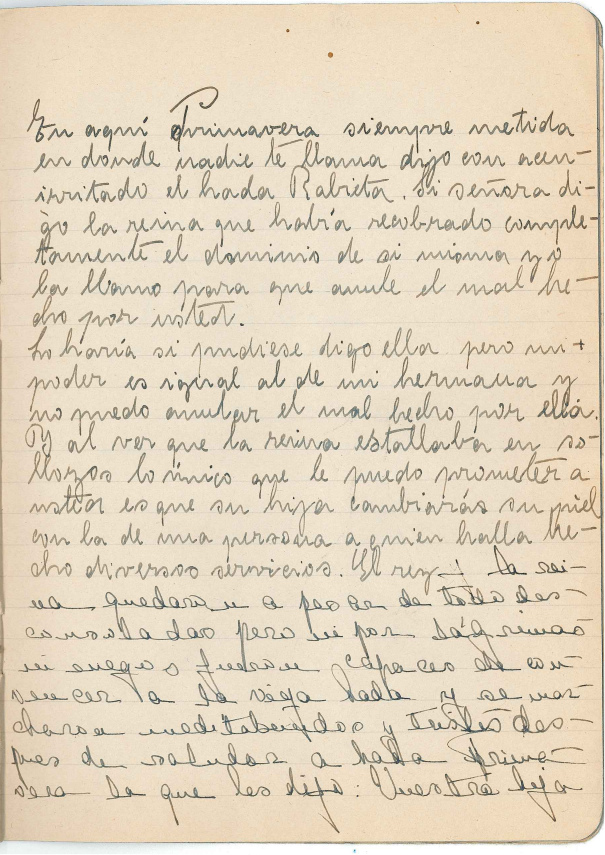 En aquí Primavera siempre metida
en donde nadie te llama dijo con acen-
irritado el hada Rabieta. Si señora di-
go la reina que había recobrado comple-
tamente el dominio de si misma yo
la llamo para que anule el mal he-
cho por usted.
Lo haría si pudiese digo ella pero mi +
poder es igual al de mi hermana y
no puedo anular el mal hecho por ella.
Y al ver que la reina estallaba en so-
llozos lo único que le puedo prometer a
usted es que su hija cambiarás su piel
con la de una persona a quien halla he-
cho diversos servicios. El rey y la rei-
na quedaron a pesar de todo des-
consolados pero ni por lágrimas
ni ruegos fueron capaces de con
vencer a la vieja hada y se mar
charon meditabundos y tristes des-
pues de saludar a hada Prima-
vera la que les dijo: Vuestra hija